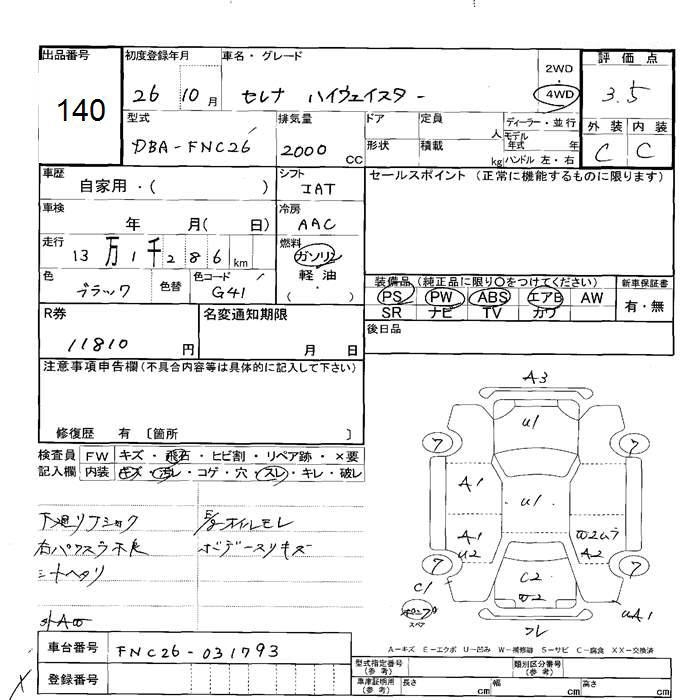 出品番号
140
初度登録年月
26 10月
車名・グレード
セレナ ハイウェイスター
2WD
4WD
評価点
3.5
外装 内装
C C
型式
DBA-FNC26
排気量
2000 CC
ドア
形状
定員 人
積載 kg
ディーラー・並行
モデル年式 年
ハンドル 左・右
車歴
自家用・( )
シフト
IAT
セールスポイント (正常に機能するものに限ります)
車検
年 月( 日)
冷房
AAC
走行
13万1千286km
燃料
ガソリン
軽油
( ・ )
色
ブラック
色替
色コード
G41
装備品 (純正品に限り○をつけてください)
PS PW ABS エアB AW
SR ナビ TV カワ
新車保証書
有・無
R券
11810 円
名変通知期限
月 日
後日品
注意事項申告欄(不具合内容等は具体的に記入して下さい)
修復歴 有 〔箇所 〕
検査員記入欄
FW キズ・飛石・ヒビ割・リペア跡・×要
内装 キズ・汚レ・コゲ・穴・スレ・キレ・破レ
下廻りフショク
E/gオイルモレ
右パワスラ不良
ボデースリキズ
シートヘタリ
A3
U1
7 7
A1
U1
A1
U2
W2
A2
7 7
C1
C2
W2
スペア
UA1
フレ
車台番号
FNC26-031793
登録番号
A-キズ E-エクボ U-凹み W-補修跡 S-サビ C-腐食 XX-交換済
型式指定番号(参考)
類別区分番号(参考)
車庫証明用(参考)
長さ cm
幅 cm
高さ cm